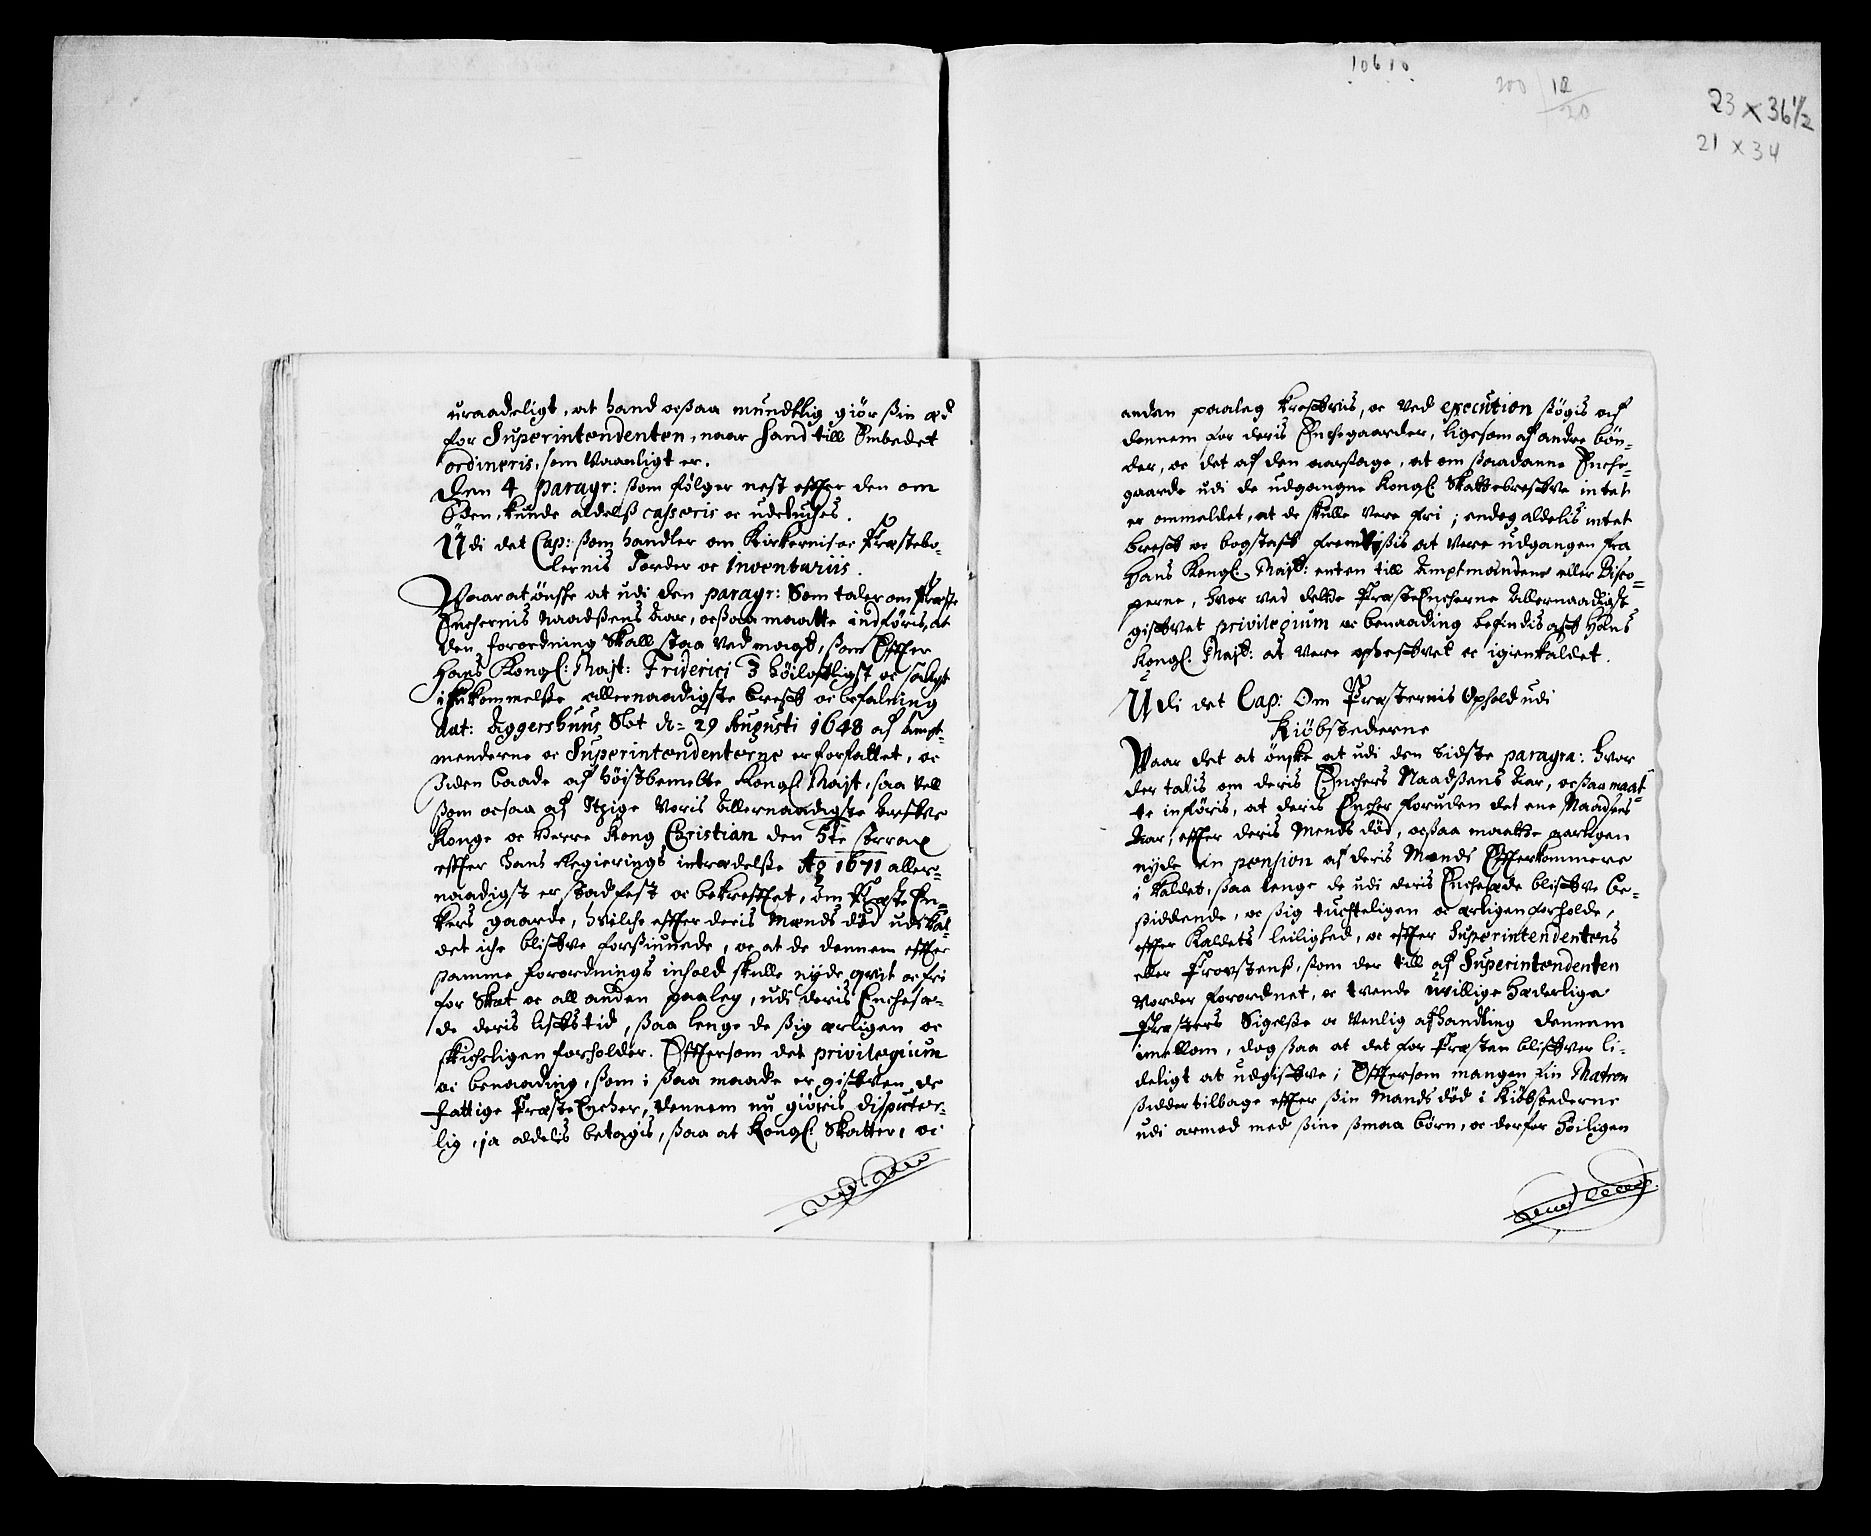 10610
200 | 12
20
23 x 36 1/2
21 x 34
uraadeligt, at hand ocsaa mundtlig giör sin æd
for Superintendenten, naar hand till Embedet
ordineris, som Vaanligt er.
Den 4 paragr: som følger nest effter den om
Eden, kunde aldelß casseris oc udeluches.
Udi det Cap: som handler om Kirkernis oc Præstebo-
lernis Jorder oc Inventariis.
Vaar at önske at udi den paragr: Som taler om Præste
Enchernis Naadßens Aar, ocsaa maatte indföris, at
den forordning Skall staa ved magt, som Effter
Hans Kongl: Majt: Friderici 3 höilofligst oc saligst
ihukommelße allernaadigste breff oc befalning
dat: Aggershuus Slot d= 29 Augusti 1648 af Ampt-
menderne oc Superintendenterne er forfattet, oc
siden baade af höistbemelte Kongl Majt, saa vell
som ocsaa af Itzige Voris Allernaadigste Arffve
Konge oc Herre Kong Christian den 5te strax
effter hans Regierings intrædelße Ao 1671 aller-
naadigst er stadfest oc bekrefftet, om Præste En-
kers gaarde, hvilche effter deris Mænds död udi Kal-
det iche bliffve forsiunede, oc at de dennem effter
samme forordnings inhold skulle nyde qvit oc fri
for Skat oc all anden paaleg, udi deris Enchesæ-
de deris liffs tid, saa lenge de sig ærligen oc
skicheligen forholder. Effter som det privilegium
oc benaading, som i saa maade er giffven de
fattige Præste Encher, dennem nu giöris disputer-
lig, ja aldelis betagis, saa at Kongl: Skatter, oc
anden paaleg kreffvis, oc ved execution sögis af
dennem for deris Enchegaarder, ligesom af andre bön-
der, oc det af den aarsage, at om saadanne Enche-
gaarde udi de udgangne Kongl: Skattebreffve intet
er ommeldet, at de skulle vere fri; endog aldelis intet
breff oc bogstaff fremviſis at vere udgangen fra
Hans Kongl. Majt: enten till Amptmændene eller Bisco-
perne, hvor ved dette Præste Encherne Allernaadigst
giffvet privilegium oc benaading befindis aff Hans
Kongl. Majt: at vere opheffvet oc igienkaldet.
Udi det Cap: Om Præsternis Ophold udi
Kiöbstederne
Vaar det at önske at udi den sidste paragra: hvor
der talis om deris Enchers Naadßens Aar, ocsaa maat-
te införis, at deris Encher foruden det ene Naadsens
Aar, effter deris Mends död, ocsaa maatte aarligen
nyde en pension af deris Mænds Effterkommere
i kaldet, saa lenge de udi deris Enchesæde bliffve be-
siddende, oc sig tuchteligen oc ærligen forholde,
effter Kaldets leilighed, oc effter Superintendentens
eller Provstenß, som der till af Superintendenten
vorder forordnet, oc tvende uvillige Hæderlige
Præsters Sigelße oc Venlig afhandling dennem
imellom, dog saa at det for Præsten bliffver li-
deligt at udgiffve; Effter som mangen Ein Matron
sidder tilbage effter sin Mands död i Kiöbstederne
udi armod med sine smaa börn, oc derfor höiligen